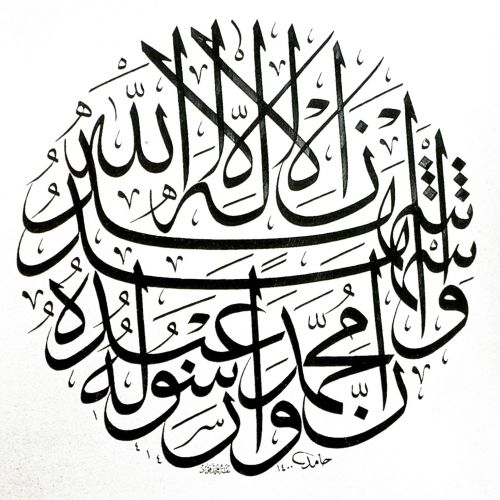 اشهد ان لا اله الا الله
واشهد ان محمدا عبده ورسوله
حامد ١٤٠٠